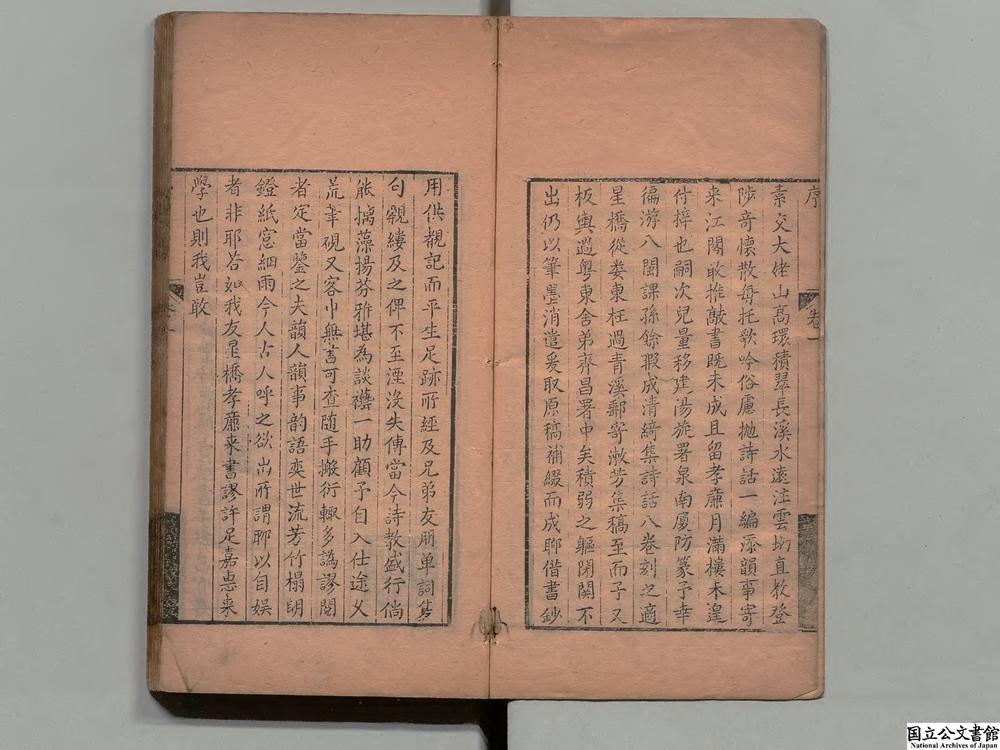 序
卷一
素交大佬山高環積翠長溪水遠注雲坳直教登
陟奇懷散每托歌吟俗慮拋詩話一編添韻事寄
来江閣敢推敲書既未成且留孝廉月滿樓未遑
付梓也嗣次兒量移建湯旋署泉南厦防篆予幸
徧游八閩課孫餘暇成清綺集詩話八卷刻之適
星橋從婁東枉過青溪郵寄漱芳集稿至而予又
板輿過粤東舍弟齊昌署中矣積弱之軀閉関不
出仍以筆墨消遣爰取原稿補綴而成聊借書鈔
用供覩記而平生足跡所經及兄弟友朋单詞隻
句覼縷及之俾不至湮沒失傳當今詩教盛行倘
能摛藻揚芬雅堪為談藝一助顧予自入仕途久
荒筆硯又客中無書可查隨手搬衍輙多譌謬閱
者定當鑒之夫韻人韻事韵語奕世流芳竹榻明
鐙紙窓細雨今人古人呼之欲出所謂聊以自娱
者非耶若如我友星橋孝廉来書謬許足嘉惠来
學也則我豈敢
国立公文書館
National Archives of Japan